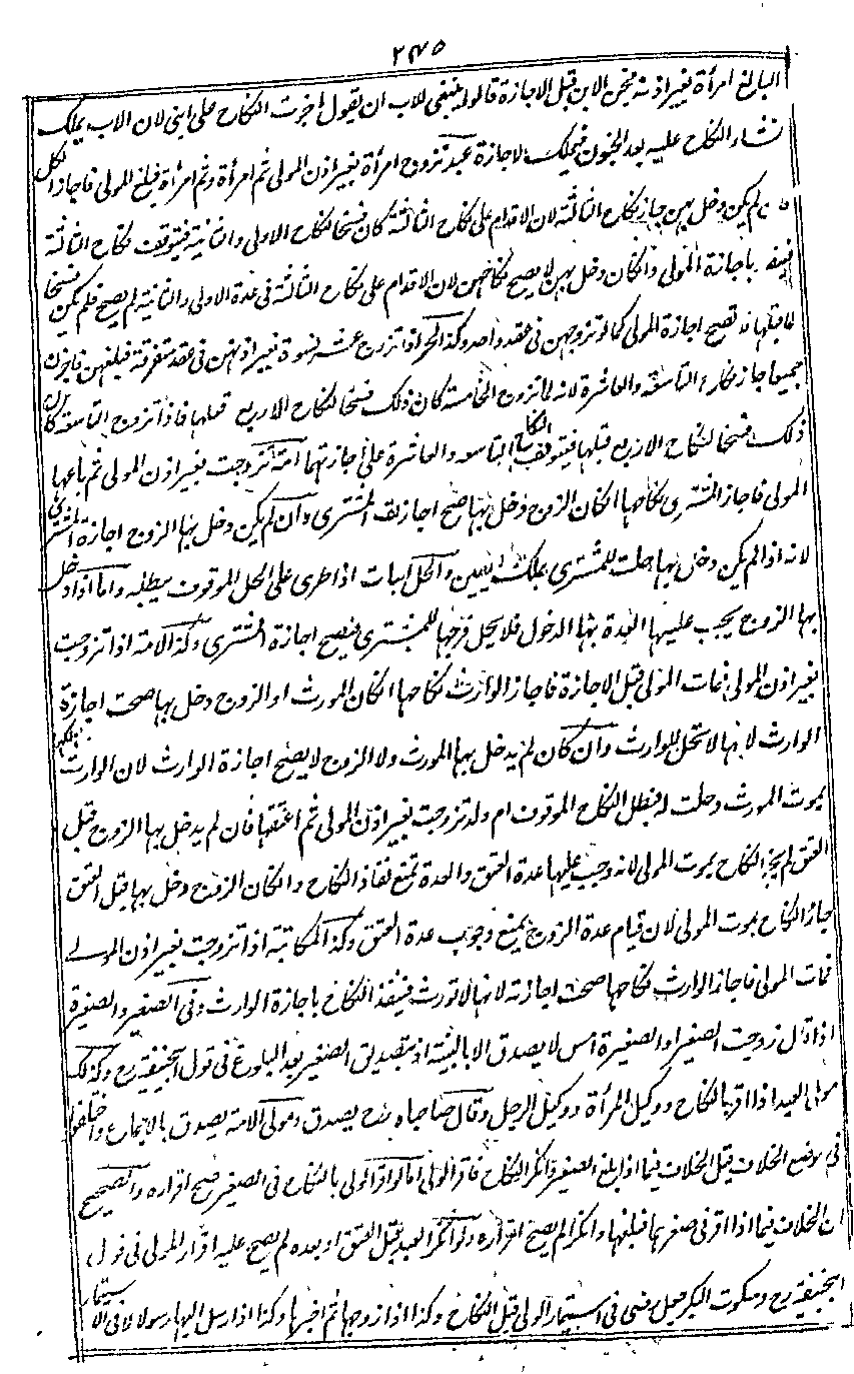 ٢٣٥
البالغ امرأة بغير اذنه فجن الابن قبل الاجازة قالوا ينبغى للاب ان يقول اجزت النكاح على ابنى لان الاب يملك
انشاء النكاح عليه بعد الجنون فيملك الاجازة عبد تزوج امرأة بغير اذن المولى ثم امرأة وثم امرأة فبلغ المولى فاجاز الكل
فان لم يكن دخل بهن جاز نكاح الثالثة لان الاقدام على نكاح الثالثة كان فسخا لنكاح الاولى والثانية فيتوقف نكاح الثالثة
فينفذ باجازة المولى وانكان دخل بهن لا يصح نكاحهن لان الاقدام على نكاح الثالثة فى عدة الاولى والثانية لم يصح فلم يكن فسخا
لما قبلها فلا تصح اجازة المولى كما لو تزوجهن فى عقد واحد وكذا الحر اذا تزوج عشر نسوة بغير اذنهن فى عقد متفرقة فبلغهن فاجزن
جميعا جاز نكاح التاسعة والعاشرة لانه لما تزوج الخامسة كان ذلك فسخا لنكاح الاربع قبلها فاذا تزوج التاسعة كان
ذلك فسخا لنكاح الاربع قبلها فيتوقف نكاح التاسعة والعاشرة على اجازتهما امة تزوجت بغير اذن المولى ثم باعها
المولى فاجاز المشترى نكاحها انكان الزوج دخل بها صح اجازة المشترى وان لم يكن دخل بها الزوج اجازة المشترى
لانه اذا لم يكن دخل بها حلت للمشترى بملك اليمين والحل البات اذا طرى على الحل الموقوف يبطله واما اذا دخل
بها الزوج يجب عليها العدة بهذا الدخول فلا يحل فرجها للمشترى فيصح اجازة المشترى وكذا الامة اذا تزوجت
بغير اذن المولى فمات المولى قبل الاجازة فاجاز الوارث نكاحها انكان المورث او الزوج دخل بها صحت اجازة
الوارث لانها لا تحل للوارث وان كان لم يدخل بها المورث ولا الزوج لا يصح اجازة الوارث لان الوارث يملكها
بموت المورث وحلت له فبطل النكاح الموقوف ام ولد تزوجت بغير اذن المولى ثم اعتقها فان لم يدخل بها الزوج قبل
العتق لم يجز النكاح بموت المولى لانه وجب عليها عدة العتق والعدة تمنع نفاذ النكاح وانكان الزوج دخل بها قبل العتق
جاز النكاح بموت المولى لان قيام عدة الزوج يمنع وجوب عدة العتق وكذا المكاتبة اذا تزوجت بغير اذن المولى
فمات المولى فاجاز الوارث نكاحها صحت اجازته لانها لا تورث فينفذ النكاح باجازة الوارث وفى الصغير والصغيرة
اذا قال زوجت الصغير او الصغيرة امس لا يصدق الا بالبينة او بتصديق الصغير بعد البلوغ فى قول ابيحنيفة رح وكذلك
مولى العبد اذا اقر بالنكاح ووكيل المرأة ووكيل الرجل وقال صاحباه رح يصدق ومولى الامة يصدق بالاجماع واختلفوا
فى موضع الخلاف قيل الخلاف فيما اذا بلغ الصغير وانكر النكاح فاقر الولى اما لو اقر الولى بالنكاح فى الصغير صح اقراره والصحيح
ان الخلاف فيما اذا اقر فى صغرهما فبلغها وانكرا لم يصح اقراره ولو انكر العبد قبل العتق او بعده لم يصح عليه اقرار المولى فى قول
ابيحنيفة رح وسكوت البكر جعل رضى فى استيمار الولى قبل النكاح وكذا اذا زوجها ثم اخبرها وكذا اذا ارسل اليها رسولا فى الاستيمار